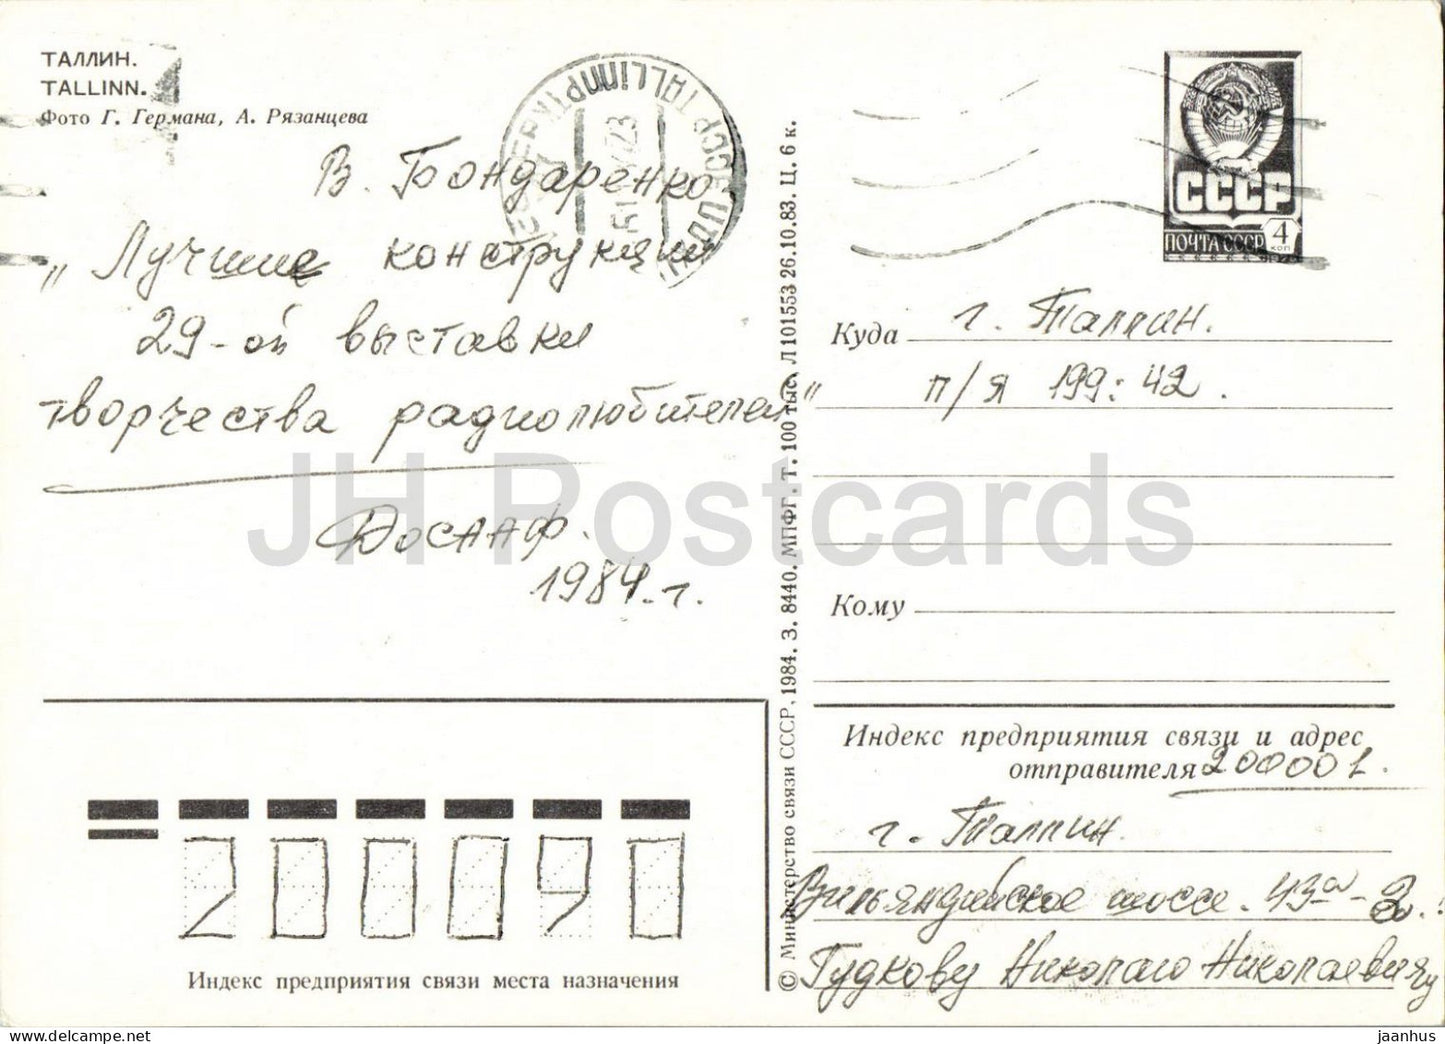 ТАЛЛИН.
TALLINN.
Фото Г. Германа, А. Рязанцева
В. Бондаренко
„Лучшие конструкции
29-ой выставки
творчества радиолюбителей"
Досааф.
1984 г.
© Министерство связи СССР, 1984. З. 8440. МПФГ. Т. 100 тыс. Л 101553 26.10.83. Ц. 6 к.
СССР
ПОЧТА СССР 4 КОП
TALLINN
СССР
Куда г. Таллин.
п/я 199: 42.
Кому
Индекс предприятия связи и адрес
отправителя 200001.
г. Таллин.
Вильяндийское шоссе. 43а-
Гудкову Николаю Николаевичу
Индекс предприятия связи места назначения
JH Postcards
jaanhus - HipPostcard.com